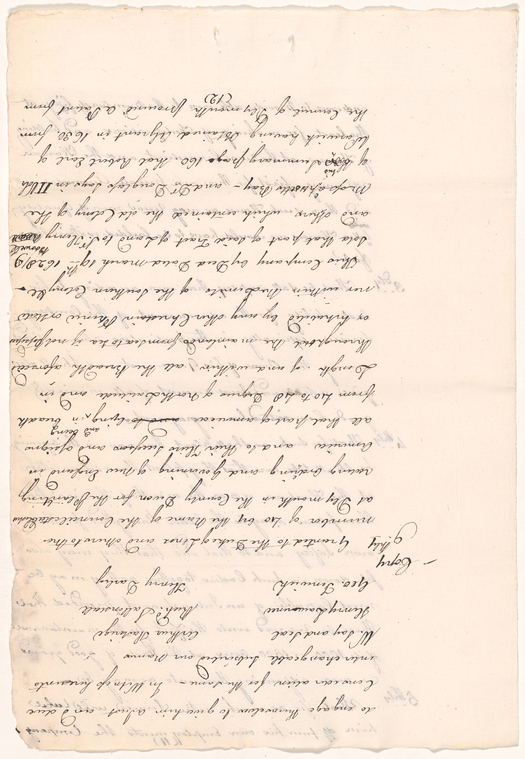 to engage themselves to give him a just and due
Consideration for the same – In Witness hereunto
interchangeable Subscribed our Names
W. Say and Seal Arthur Haslerigs
Henry Lawrence Rich.d Saltonstall
Geo. Fenwick Henry Darley
– Copy
Granted to the Duke of Lenox and others to the
number of 40 by the Name of the Council established
at Plymouth in the County Devon for the Planting
ruling ordering and governing of New England in
America and to their Successors and Assigns
all that part of America lying and being in breadth
from 40 to 48 Degrees of North Latitude and in
Length of and within all the Breadth aforesd
throughout the mainland from sea to sea if not possessed
or Inhabited by any other Christian Prince or State
nor within the Limits of the Southern Colony &c –
This Company by Deed Dated March 19th 1628/9
Sold that part of said Tract of Land to Sr. Henry Roswell
and others which contained the old Colony of the
Massachusetts Bay – and Dr. Douglass says in II Vol
of his Summary page 160. that Robert Earl of
Warwick having obtained a grant in 1630 from
the Council of Plymouth procured a Patent from
(12)